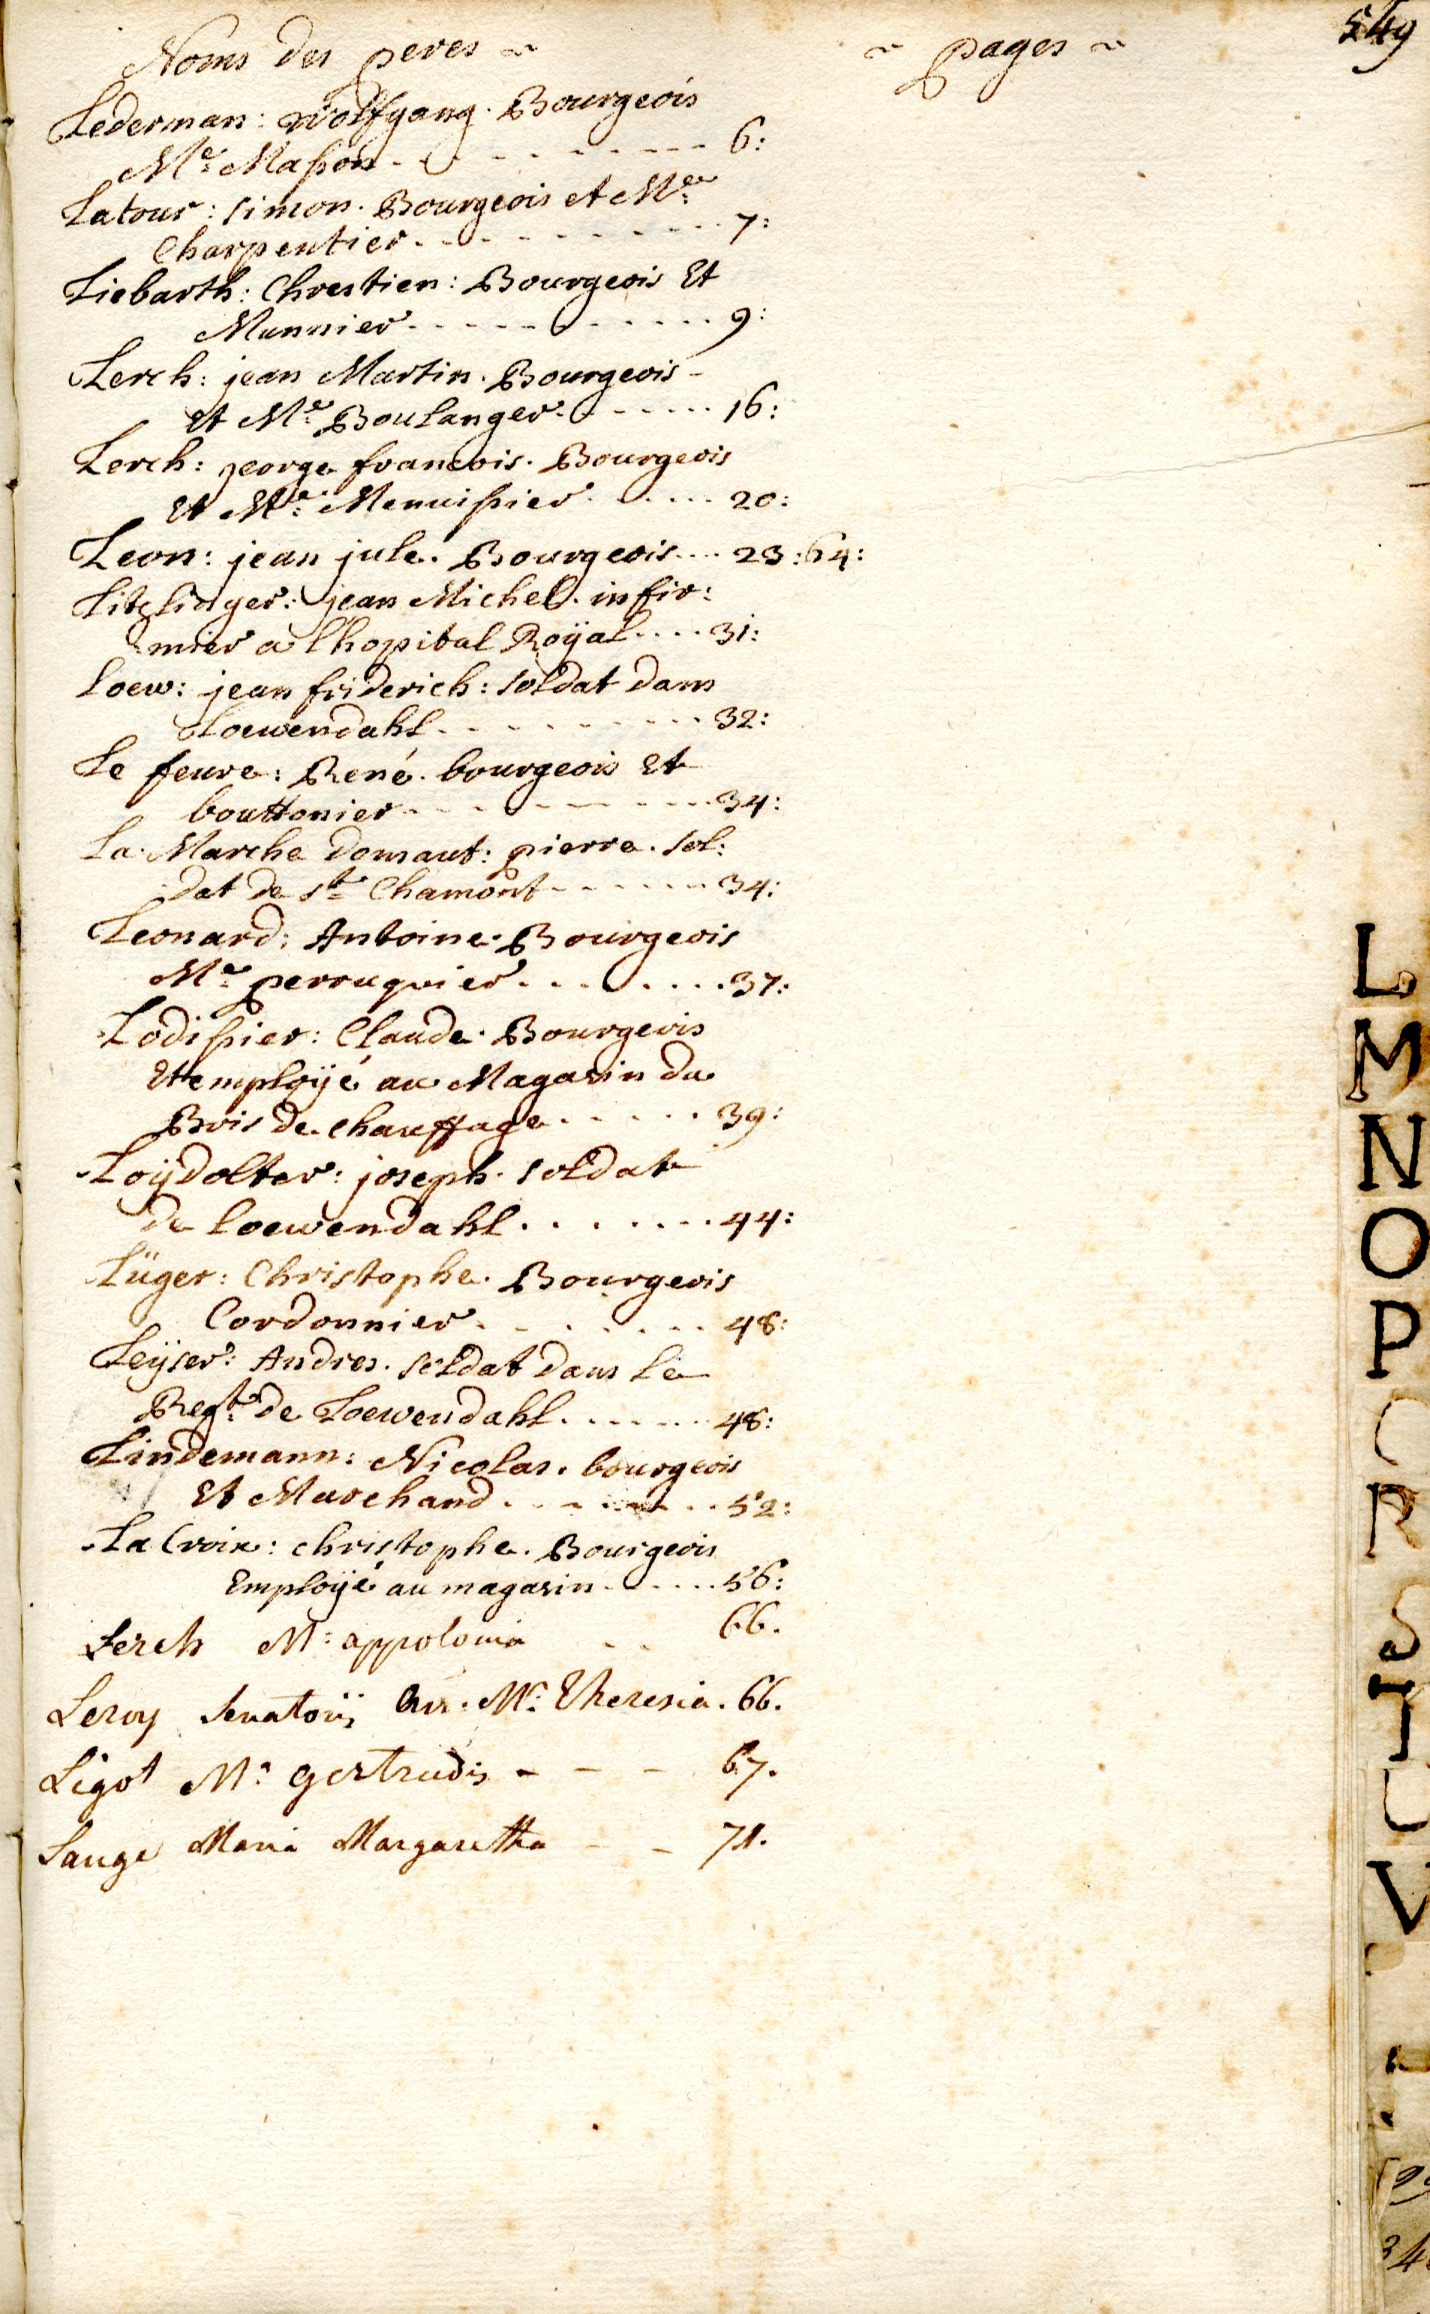 549
Noms des peres ~ ~ pages ~
Lederman: Wolffgang. Bourgeois
Me: Masson - - - - - - - - - - 6:
Latour: simon. Bourgeois et Me:
Charpentier - - - - - - - - - - 7:
Liebarth: Chrestien: Bourgeois Et
Munnier - - - - - - - - - - 9:
Lerch: jean Martin. Bourgeois -
et Me: Boulanger - - - - - - 16:
Lerch: george francois. Bourgeois
Et Me: Menuissier - - - - - 20:
Leon: jean jule. Bourgeois - - - 23: 64:
Litzlinger: jean Michel. infir:
mier a l'hopital Roÿal . . . . 31:
Loew: jean friderich: soldat dans
Loewendahl - - - - - - - - - 32:
Le feure: René. bourgeois Et
bouttonier - - - - - - - - - 34:
La Marche domaut: pierre. sol:
dat de st: Chamont - - - - - - 34:
Leonard: Antoine. Bourgeois
Me: perruquier . . . . . . . . 37:
Lodissier: Claude. Bourgeois
Et emploÿé au Magasin du
Bois de chauffage . . . . . 39:
Loÿdolter: joseph. soldat
de loewendahl . . . . . . . 44:
Lüger: Christophe. Bourgeois
Cordonnier . . . . . . . . 48:
Leÿser: Andres. soldat dans Le
Regt: de Loewendahl . . . . . . 48:
Lindemann: Nicolas. bourgeois
Et Marchand . . . . . . . . 52:
La Croix: christophe. Bourgeois
Emploÿé au magasin . . . . . . 56:
Lerch M: appolonia - - 66.
Leroy Senatoris M: Theresia. 66.
Ligot Ma: gertrudis - - - 67.
Lange Maria Margaretha - - 71.
L
M
N
O
P
R
S
T
U
V